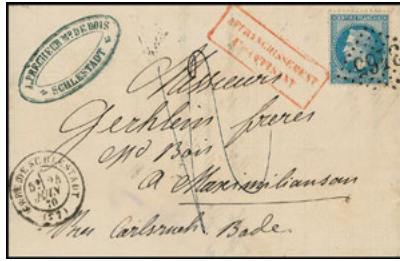 A. PRECHEUR Md. DE BOIS
SCHLESTADT
AFFRANCHISSEMENT
INSUFFISANT
Monsieur
Gerhlein freres
Md Bois
a Maximiliansau
Carlsruh Bade.
GARE DE SCHLESTADT
JUIN
70
(67)